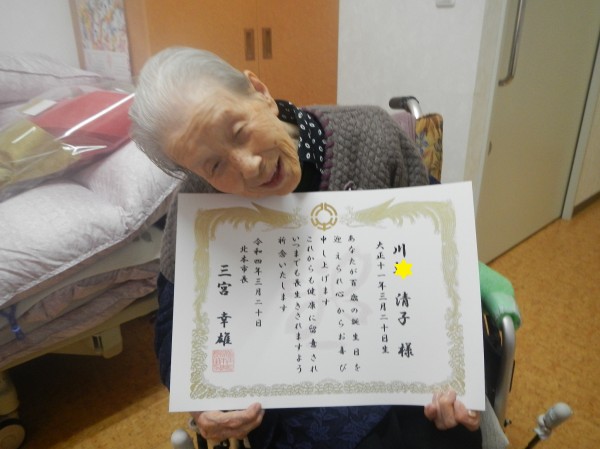 川 清子 様
大正十一年三月二十日生
あなたが百歳の誕生日を
迎えられ心からお喜び
申し上げます
これからも健康に留意され
いつまでも長生きされますよう
祈念いたします
令和四年三月二十日
北本市長
三宮 幸雄